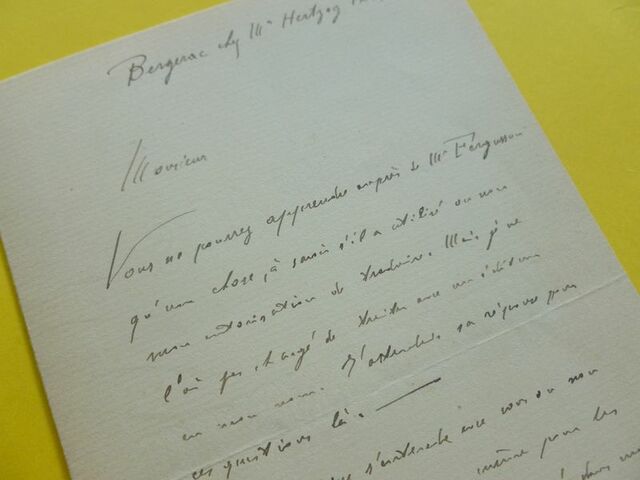 Bergerac chez Mr Hertzog
Monsieur
Vous ne pourrez apprendre auprès de Mr Fergusson
qu'une chose, à savoir s'il a utilisé ou non
mon autorisation de traduire. Mais je ne
l'ai pas chargé de traiter avec un éditeur
en mon nom. J'attendrai sa réponse pour
ces questions là. —
s'entende avec vous ou non
même pour les